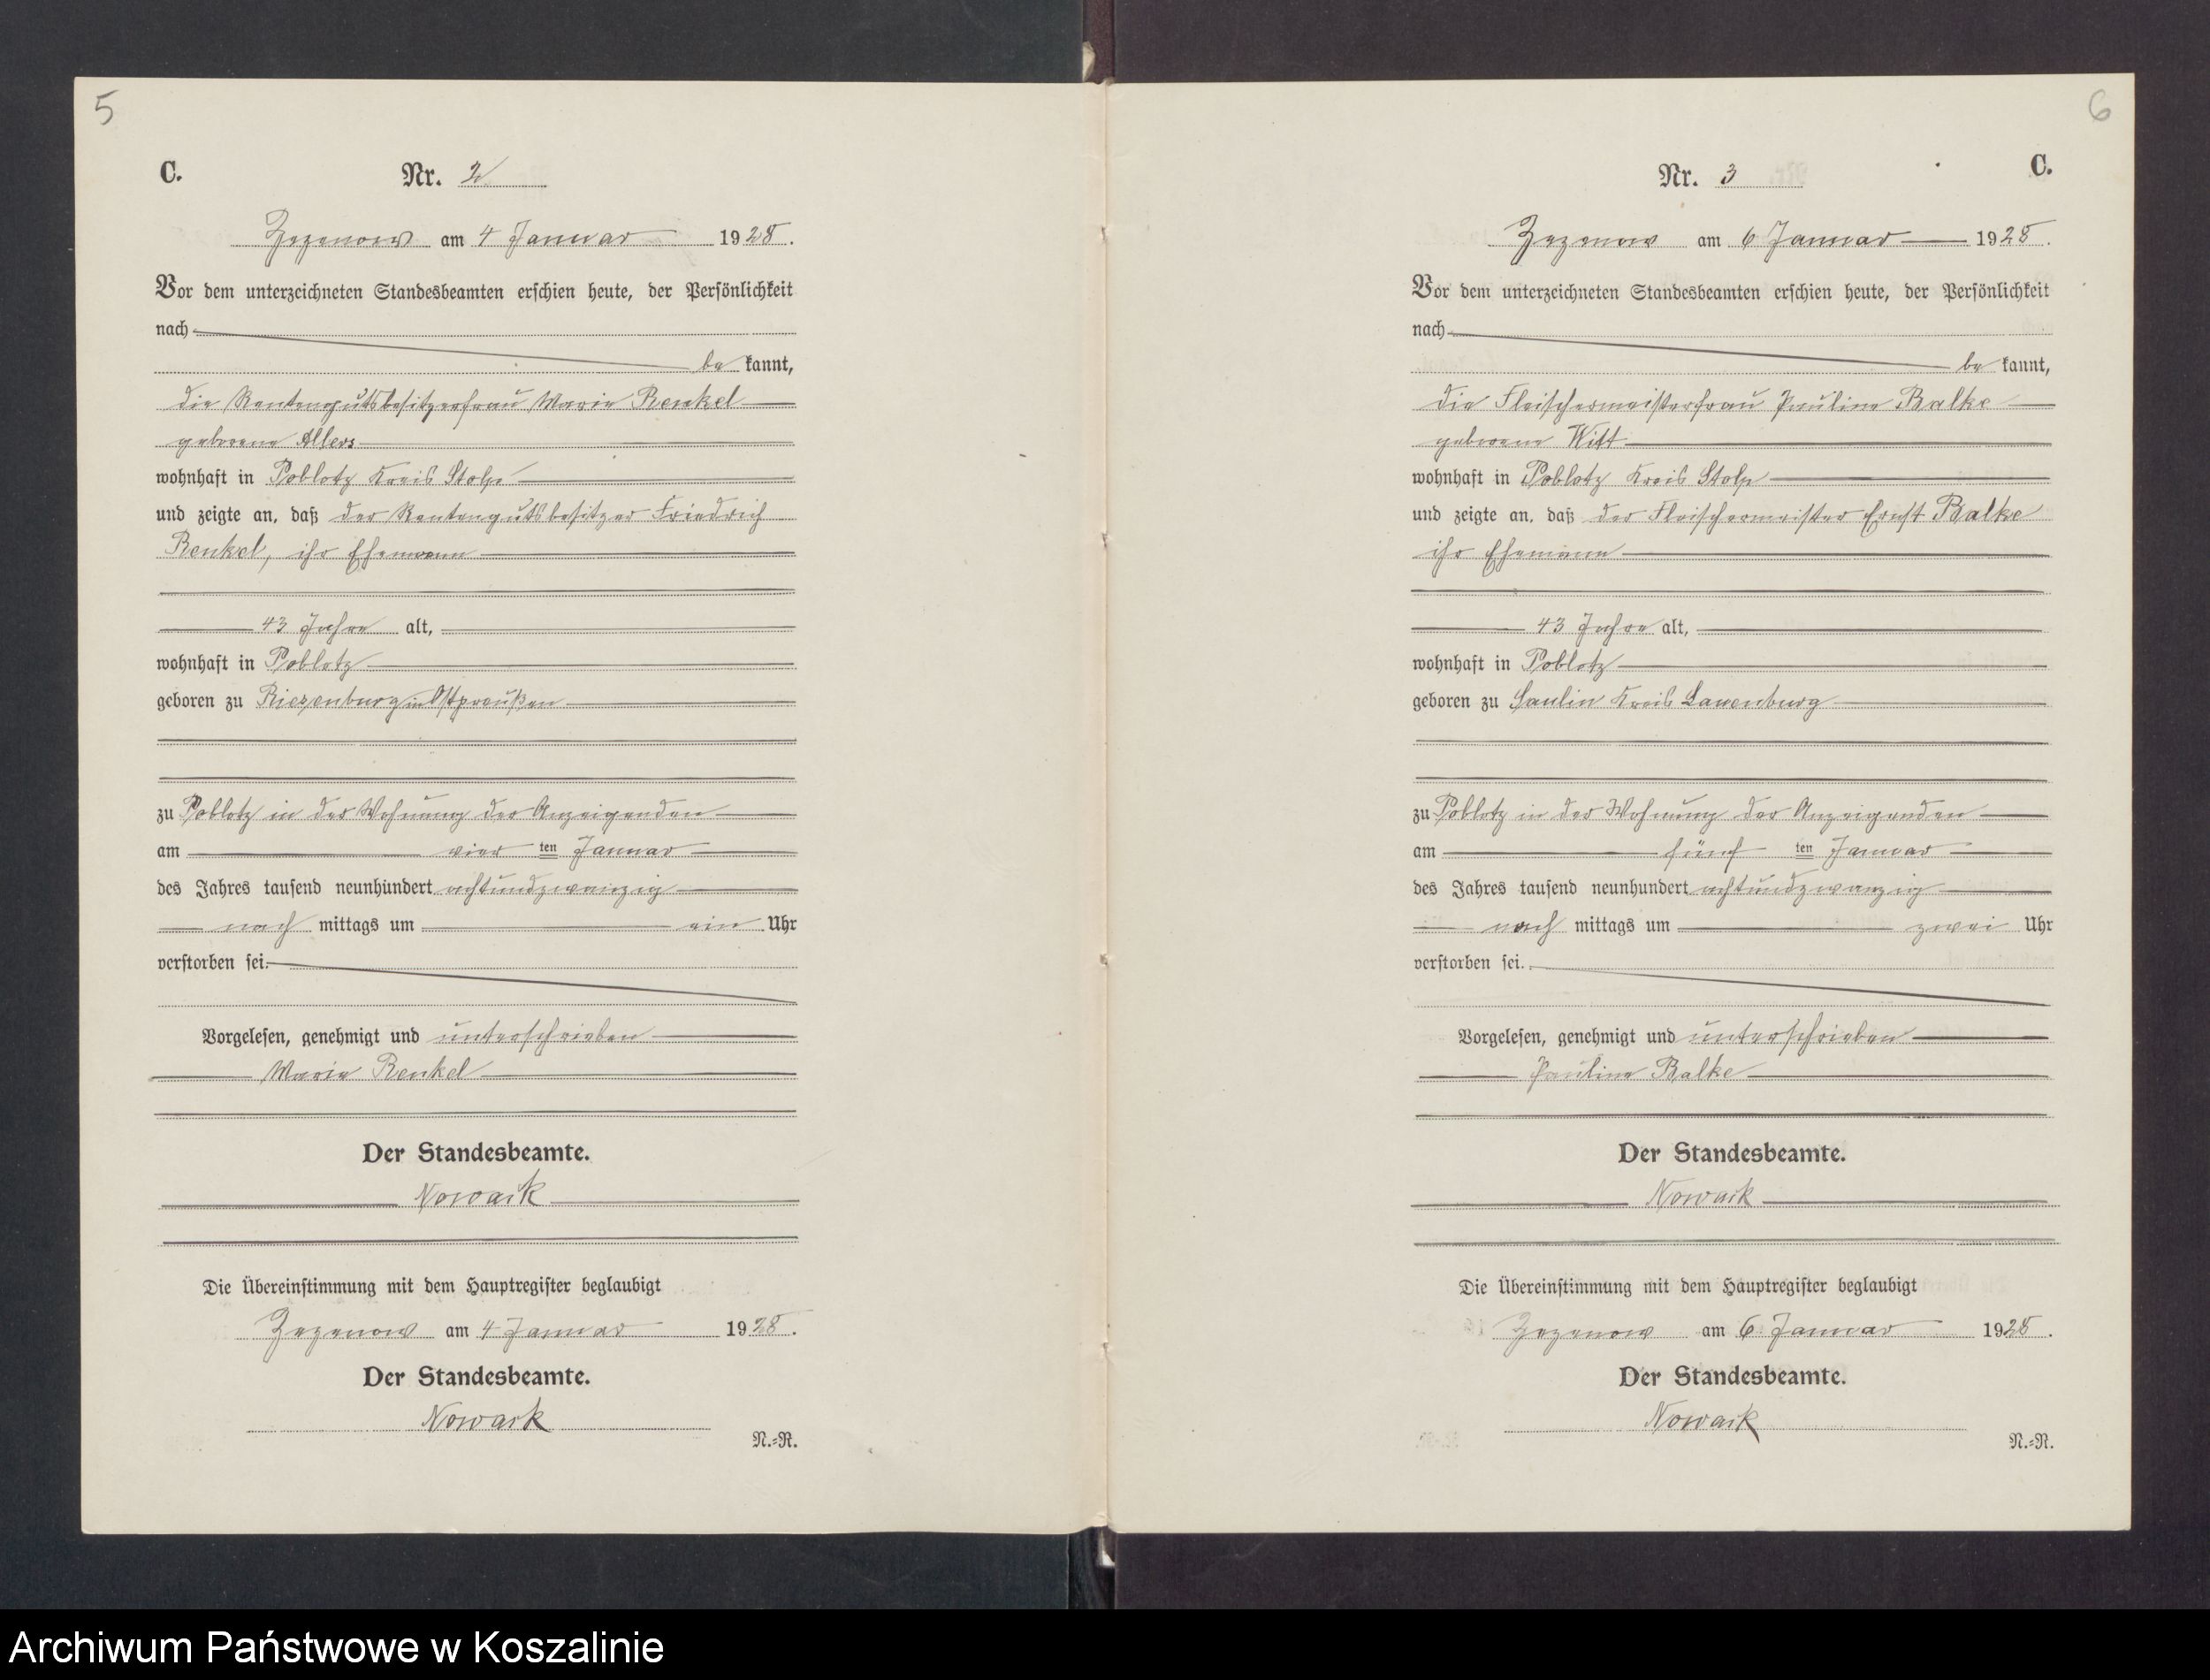 5
C. Nr. 2
Zezenow am 4 Januar 1928.
Vor dem unterzeichneten Standesbeamten erschien heute, der Persönlichkeit
nach
be kannt,
die Rentengutsbesitzerfrau Marie Renkel
geborene Allers
wohnhaft in Poblotz Kreis Stolp
und zeigte an, daß der Rentengutsbesitzer Friedrich
Renkel, ihr Ehemann
43 Jahre alt,
wohnhaft in Poblotz
geboren zu Riesenburg in Ostpreußen
zu Poblotz in der Wohnung der Anzeigenden
am vier ten Januar
des Jahres tausend neunhundert achtundzwanzig
nach mittags um ein Uhr
verstorben sei.
Vorgelesen, genehmigt und unterschrieben
Marie Renkel
Der Standesbeamte.
Nowack
Die Übereinstimmung mit dem Hauptregister beglaubigt
Zezenow am 4 Januar 1928.
Der Standesbeamte.
Nowack
N.=R.
6
Nr. 3 C.
Zezenow am 6 Januar 1928.
Vor dem unterzeichneten Standesbeamten erschien heute, der Persönlichkeit
nach
be kannt,
die Fleischermeisterfrau Pauline Balke
geborene Witt
wohnhaft in Poblotz Kreis Stolp
und zeigte an, daß der Fleischermeister Ernst Balke
ihr Ehemann
43 Jahre alt,
wohnhaft in Poblotz
geboren zu Saulin Kreis Lauenburg
zu Poblotz in der Wohnung der Anzeigenden
am fünf ten Januar
des Jahres tausend neunhundert achtundzwanzig
nach mittags um zwei Uhr
verstorben sei.
Vorgelesen, genehmigt und unterschrieben
Pauline Balke
Der Standesbeamte.
Nowack
Die Übereinstimmung mit dem Hauptregister beglaubigt
Zezenow am 6 Januar 1928.
Der Standesbeamte.
Nowack
N.=R.
Archiwum Państwowe w Koszalinie